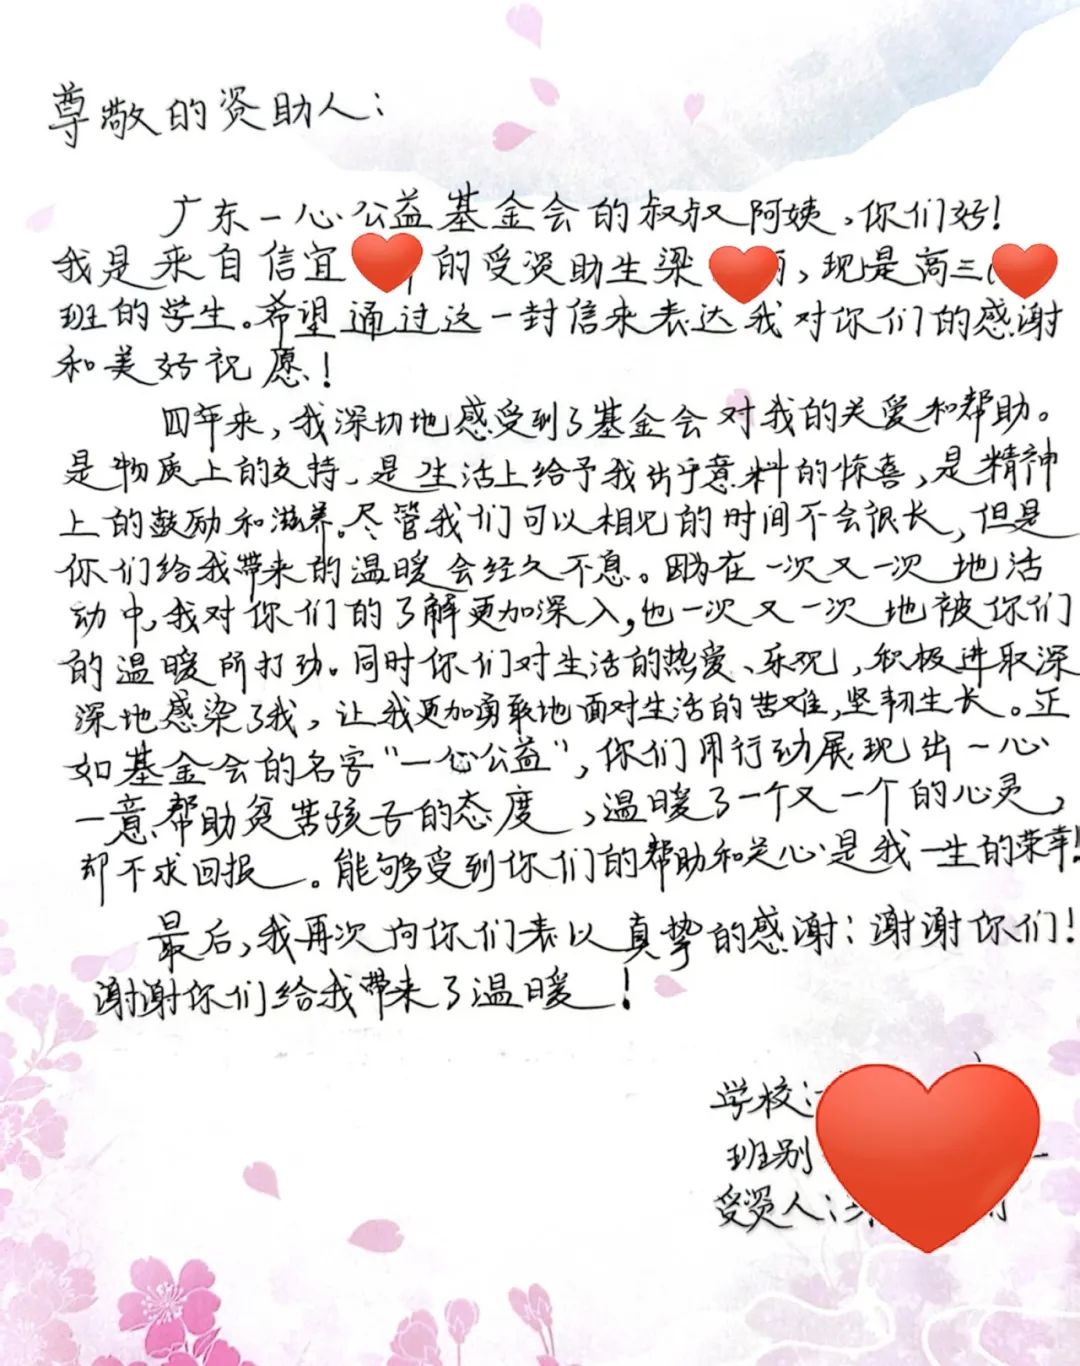 尊敬的资助人：
广东一心公益基金会的叔叔阿姨，你们好！
我是来自信宜 的受资助生梁 ，现是高三
班的学生。希望通过这一封信来表达我对你们的感谢
和美好祝愿！
四年来，我深切地感受到了基金会对我的关爱和帮助。
是物质上的支持、是生活上给予我出乎意料的惊喜，是精神
上的鼓励和滋养。尽管我们可以相见的时间不会很长，但是
你们给我带来的温暖会经久不息。因为在一次又一次地活
动中，我对你们的了解更加深入，也一次又一次地被你们
的温暖所打动。同时你们对生活的热爱、乐观，积极进取深
深地感染了我，让我更加勇敢地面对生活的苦难，坚韧生长。正
如基金会的名字“一心公益”，你们用行动展现出一心
一意帮助贫苦孩子的态度，温暖了一个又一个的心灵，
却不求回报。能够受到你们的帮助和关心是我一生的荣幸！
最后，我再次向你们表以真挚的感谢：谢谢你们！
谢谢你们给我带来了温暖！
学校：
班别
受资人：